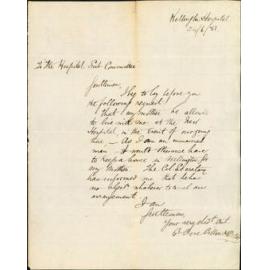 Wellington Hospital
24/6/81
To the Hospital Sub Committee
Gentlemen,
I beg to lay before you
the following request:
that my Mother be allowed
to live with me at the New
Hospital, in the event of our going
there – As I am an unmarried
man & would otherwise have
to keep a house in Wellington for
my Mother. The Col. Secretary
has informed me that he has
no objection whatever to such an
arrangement
I am
Gentlemen,
Your very obdt